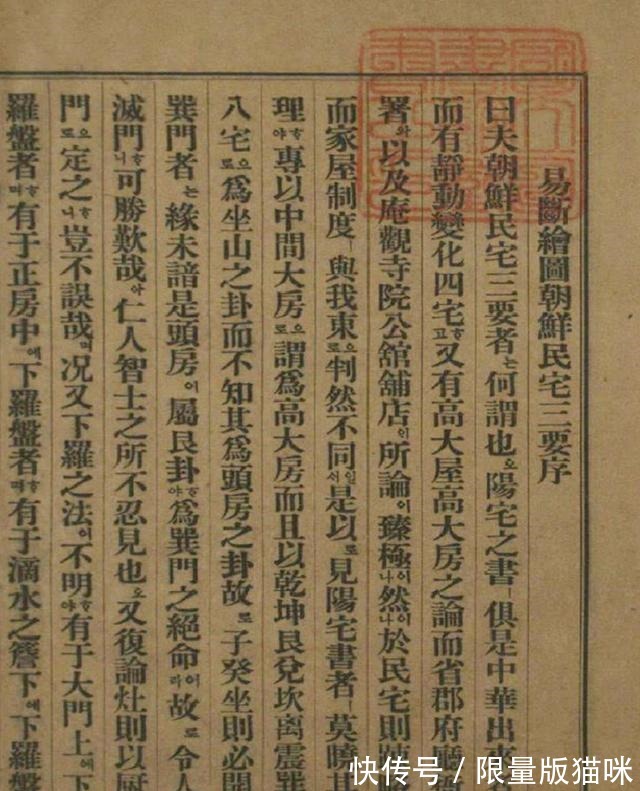 易斷繪圖朝鮮民宅三要序
曰夫朝鮮民宅三要者는何謂也오陽宅之書ㅣ俱是中華出來
而有靜動變化四宅ᄒᆞ고又有高大屋高大房之論而省郡府廳
署와以及庵觀寺院公舘舖店이所論이臻極이나然이나於民宅則
而家屋制度ㅣ與我東으로判然不同일ᄉᆡ是以로見陽宅書者ㅣ莫曉其
理ᄒᆞ야專以中間大房으로謂爲高大房而且以乾坤艮兌坎离震巽
八宅으로爲坐山之卦而不知其爲頭房之卦故로子癸坐則必開
巽門者는緣未諳是頭房이屬艮卦ᄒᆞ야爲巽門之絕命이라故로令人
滅門ᄒᆞ니可勝歎哉아仁人智士之所不忍見也오又復論灶則以厨
門으로定之ᄒᆞ니豈不誤哉아况又下羅之法이不明ᄒᆞ야有于大門上에下
羅盤者ᄒᆞ며有于正房中에下羅盤者ᄒᆞ며有于滴水之簷下에下羅盤
快传号/限量版猫咪